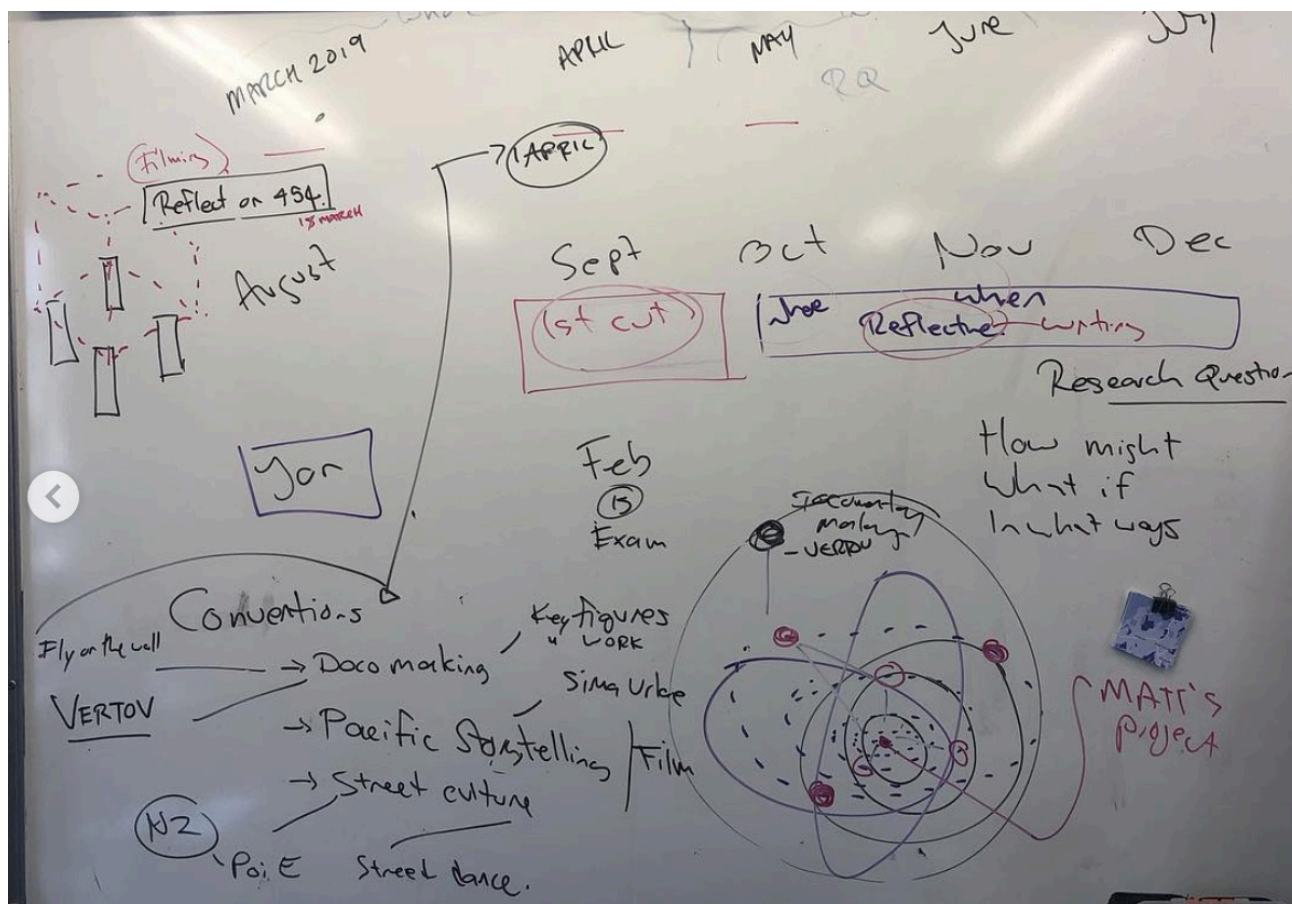 MARCH 2019
APRIL
MAY
June
July
RQ
Filming
Reflect on 454.
18 MARCH
1 APRIL
August
Sept
Oct
Nov
Dec
1st cut
when
Reflective writing
Research Question
How might
What if
In what ways
Jan
Feb
15
Exam
making
- VERTOV
Conventions
Fly on the wall
VERTOV
→ Doco making
Key figures
" WORK
→ Pacific Storytelling
Sima Urale
→ Street culture
Film
NZ
Poi E
Street dance.
MATT'S
project